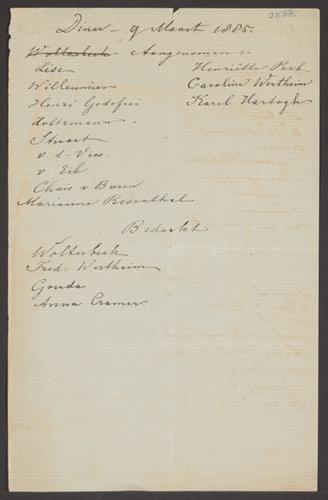 Diner - 9 Maart 1885.
Wolterbeek Aangenomen:
Lise
Willeumier
Henri Godefroi
Holtzmann.
Stuart
v. d. Vies.
v. Eik.
Chais v Buren
Marianne Rosenthal
Henriëtte Perk
Caroline Wertheim
Karel Hartogh
Bedankt
Wolterbeek
Fred. Wertheim
Gouda
Anna Cramer.